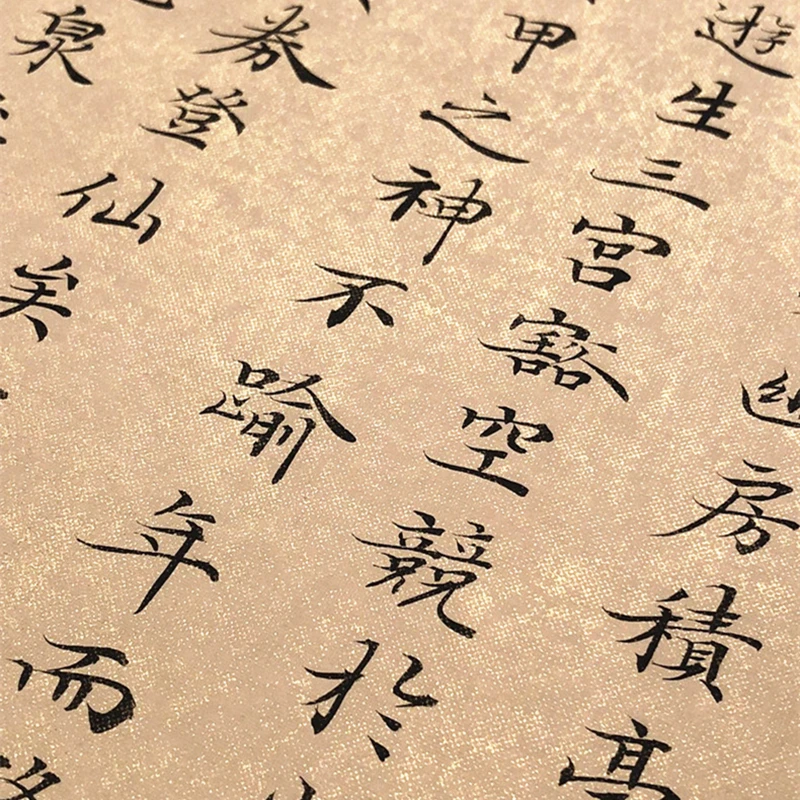 幽房積
遊生三宮豁空競於
甲之神不踰年而
券登仙矣
泉